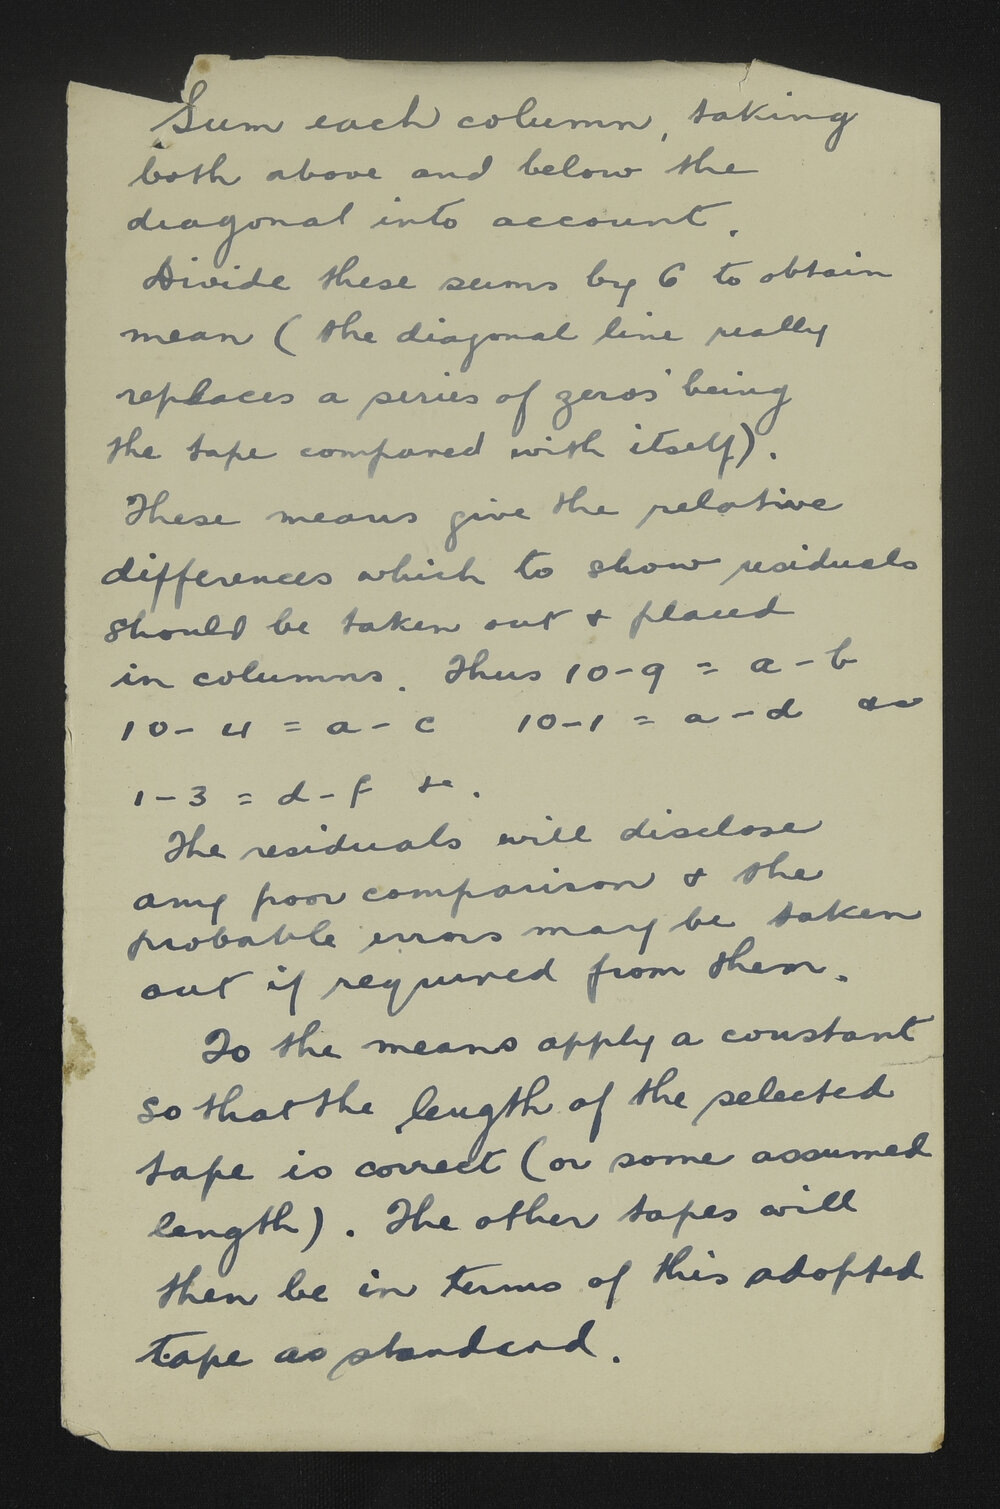 Sum each column, taking
both above and below the
diagonal into account.
Divide these sums by 6 to obtain
mean (the diagonal line really
replaces a series of zeros being
the tape compared with itself).
These means give the relative
differences which to show residuals
should be taken out & placed
in columns. Thus 10-9 = a-b
10-4 = a-c 10-1 = a-d &c
1-3 = d-f &c.
The residuals will disclose
any poor comparison & the
probable errors may be taken
out if required from them.
To the means apply a constant
so that the length of the selected
tape is correct (or some assumed
length). The other tapes will
then be in terms of this adopted
tape as standard.